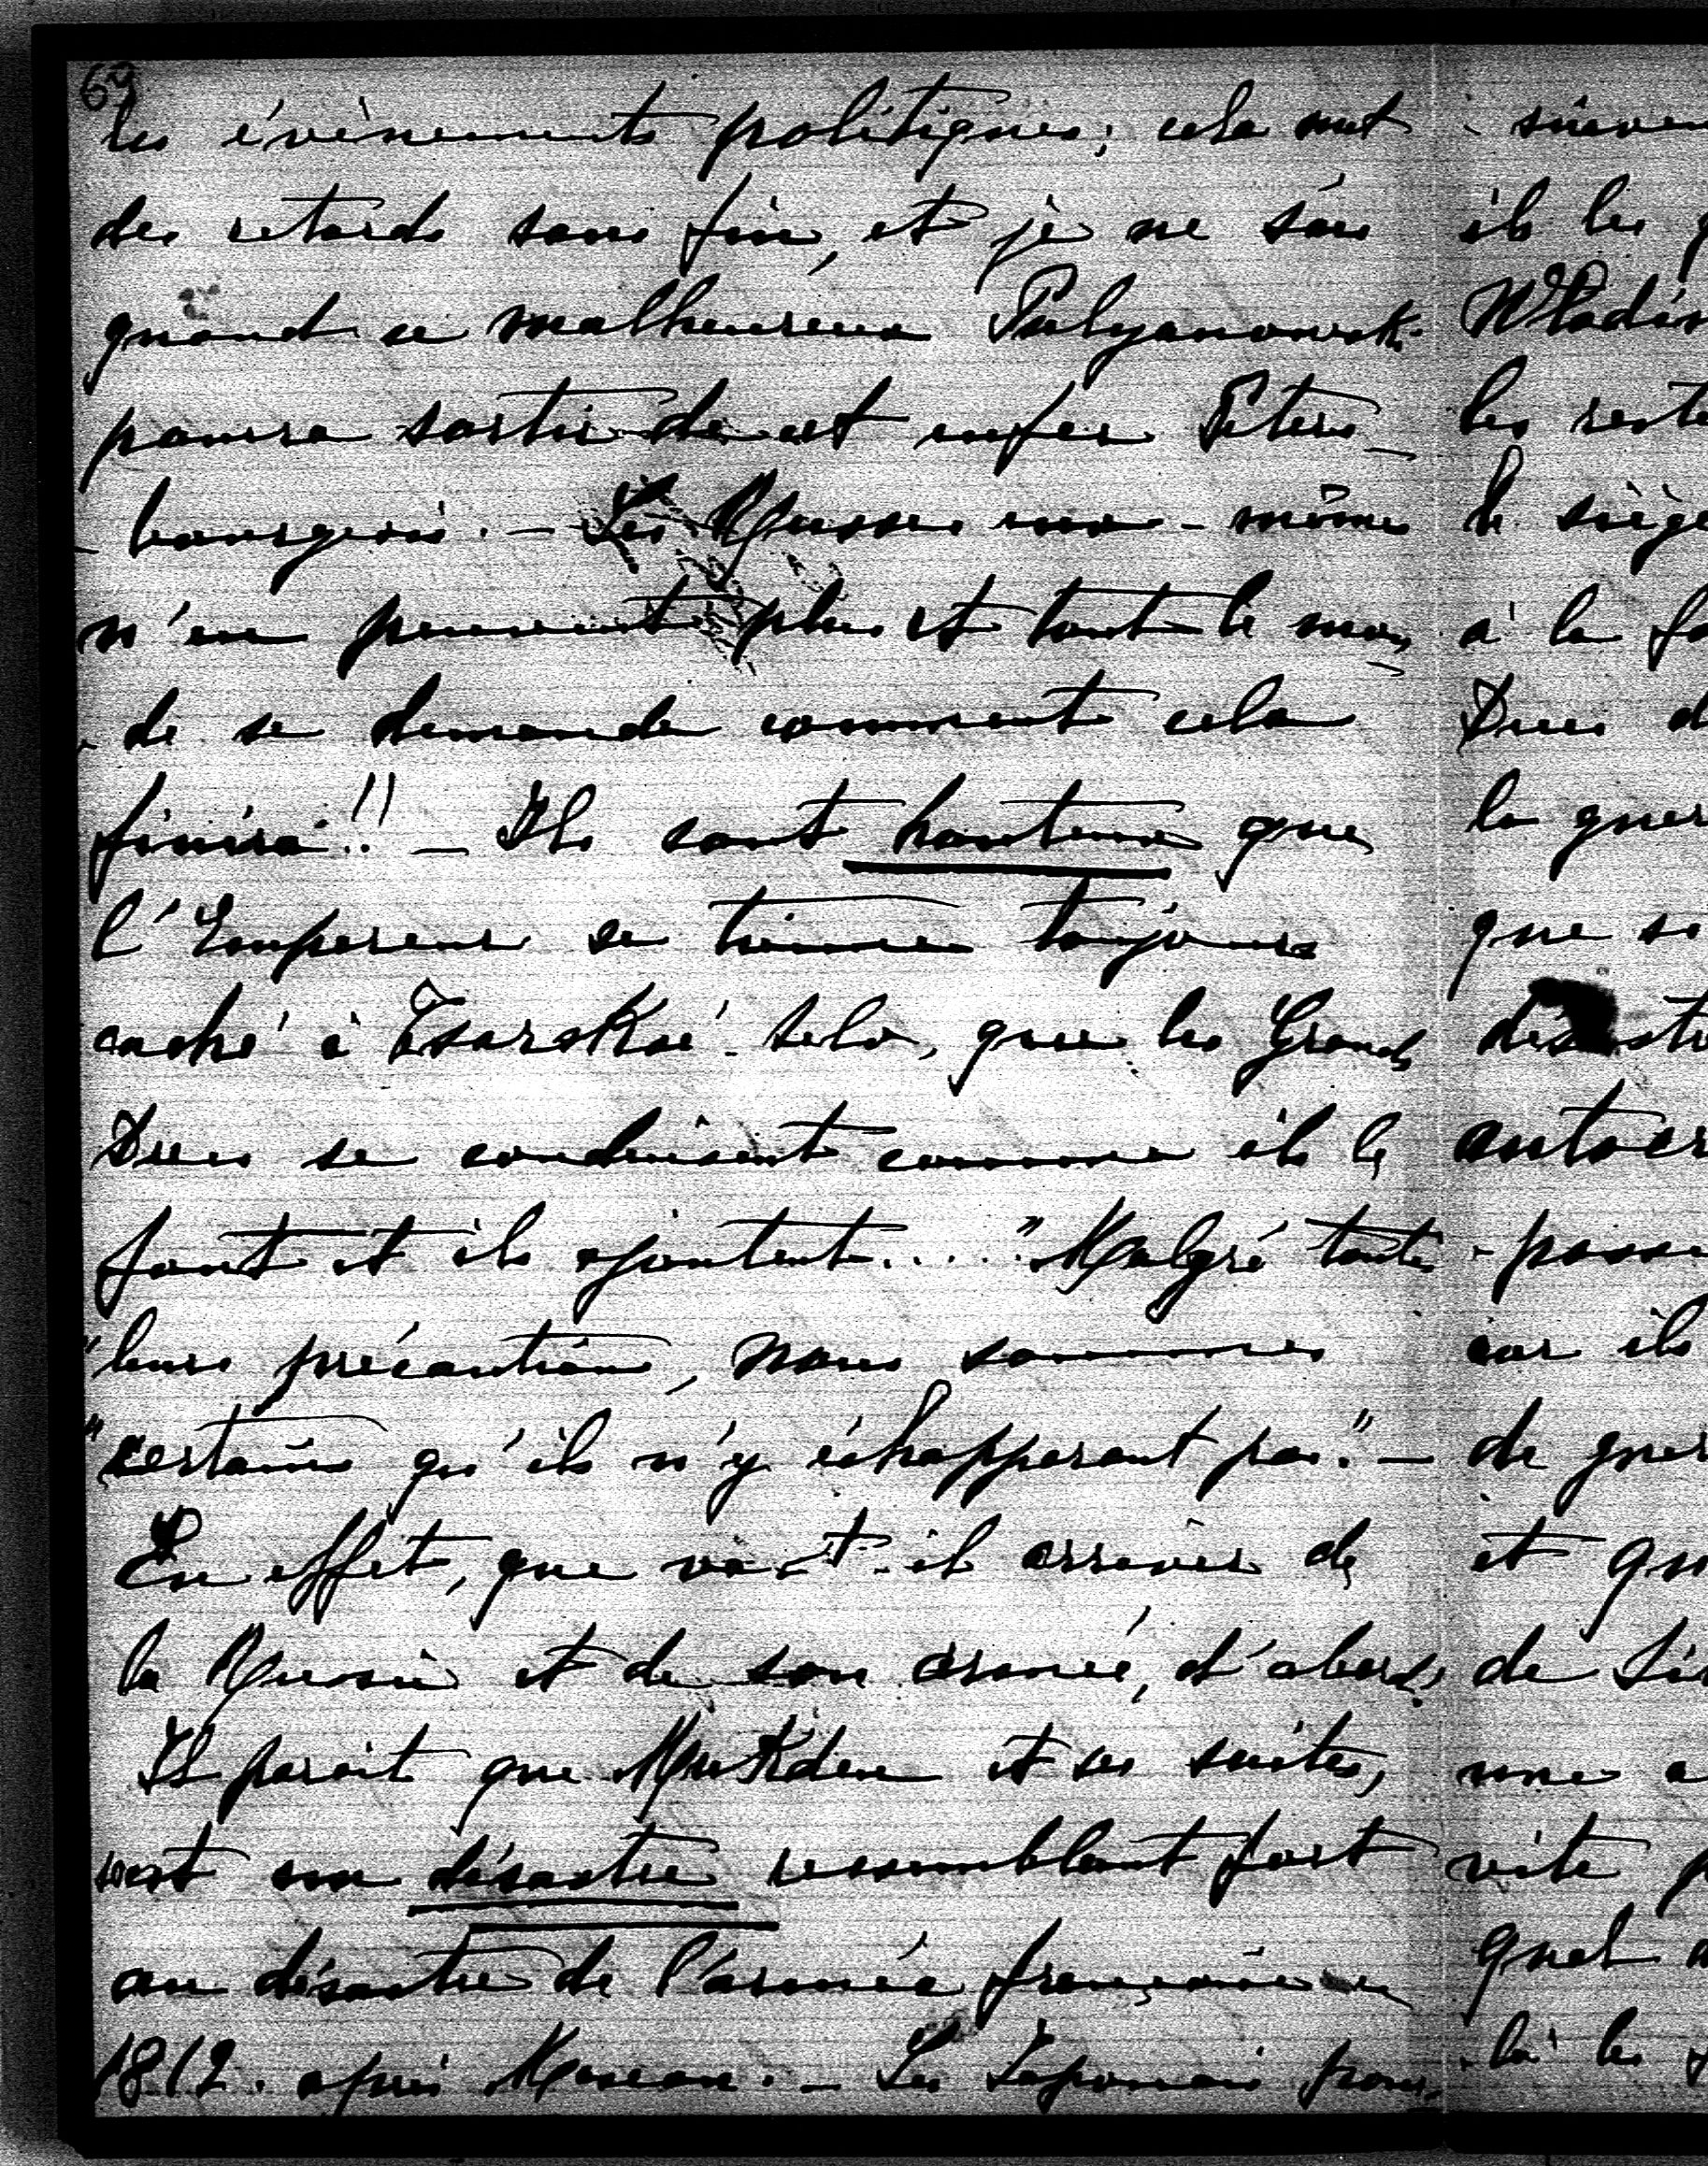 67
les évènements politiques; cela met
des retards sans fin, et je ne sais
quand ce malheureux Pulyanowski
pourra sortir de cet enfer Peters_
_bourgeois. – Les Russes eux-mêmes
n'en peuvent plus et tout le mon_
_de se demande comment cela
finira!! – Ils sont honteux que
l'Empereur se tienne toujours
caché à Tsarskoé-Selo, que les Grands
Ducs se conduisent comme ils le
font et ils ajoutent.... "Malgré toutes
"leurs précautions, nous sommes
"certains qu'ils n'y échapperont pas." –
En effet, que va-t-il arriver de
la Russie et de son armée, d'abord?
Il parait que Mukden et ses suites,
sont un désastre ressemblant fort
au désastre de l'armée française en
1812. après Moscou. – Les Japonais pour_
suiven
ils les
Wladim
les reste
le siège
à la fo
Ducs d
la guer
que so
désastr
autocr
-passe
car ils
de guer
et qu
de Si
une a
vite p
quel
-là les